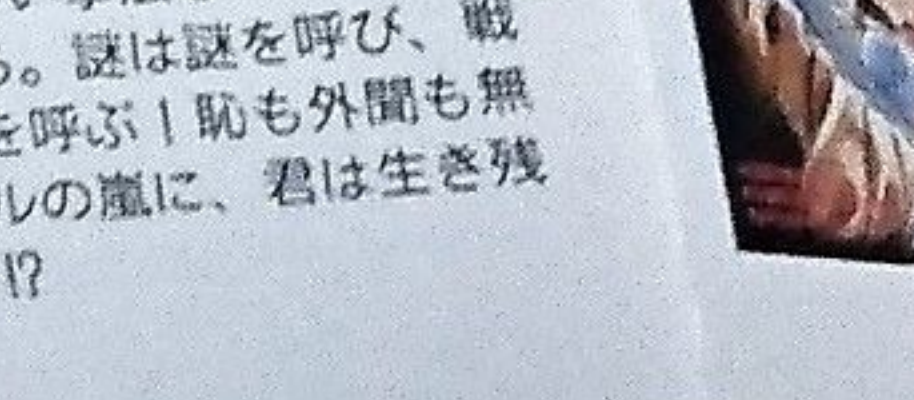 。謎は謎を呼び、戦
を呼ぶ！恥も外聞も無
ルの嵐に、君は生き残
!?